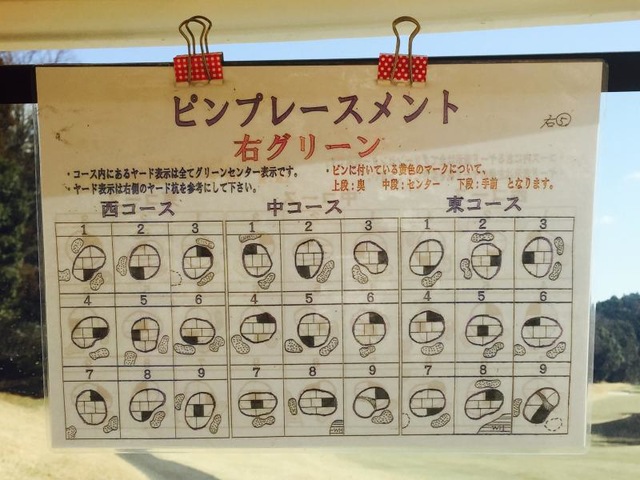 ピンプレースメント
右⑤
右グリーン
・コース内にあるヤード表示は全てグリーンセンター表示です。
・ヤード表示は右側のヤード杭を参考にして下さい。
・ピンに付いている黄色のマークについて、
上段:奥 中段:センター 下段:手前 となります。
西コース 中コース 東コース
1 2 3 1 2 3 1 2 3
4 5 6 4 5 6 4 5 6
7 8 9 7 8 9 7 8 9
WH WH